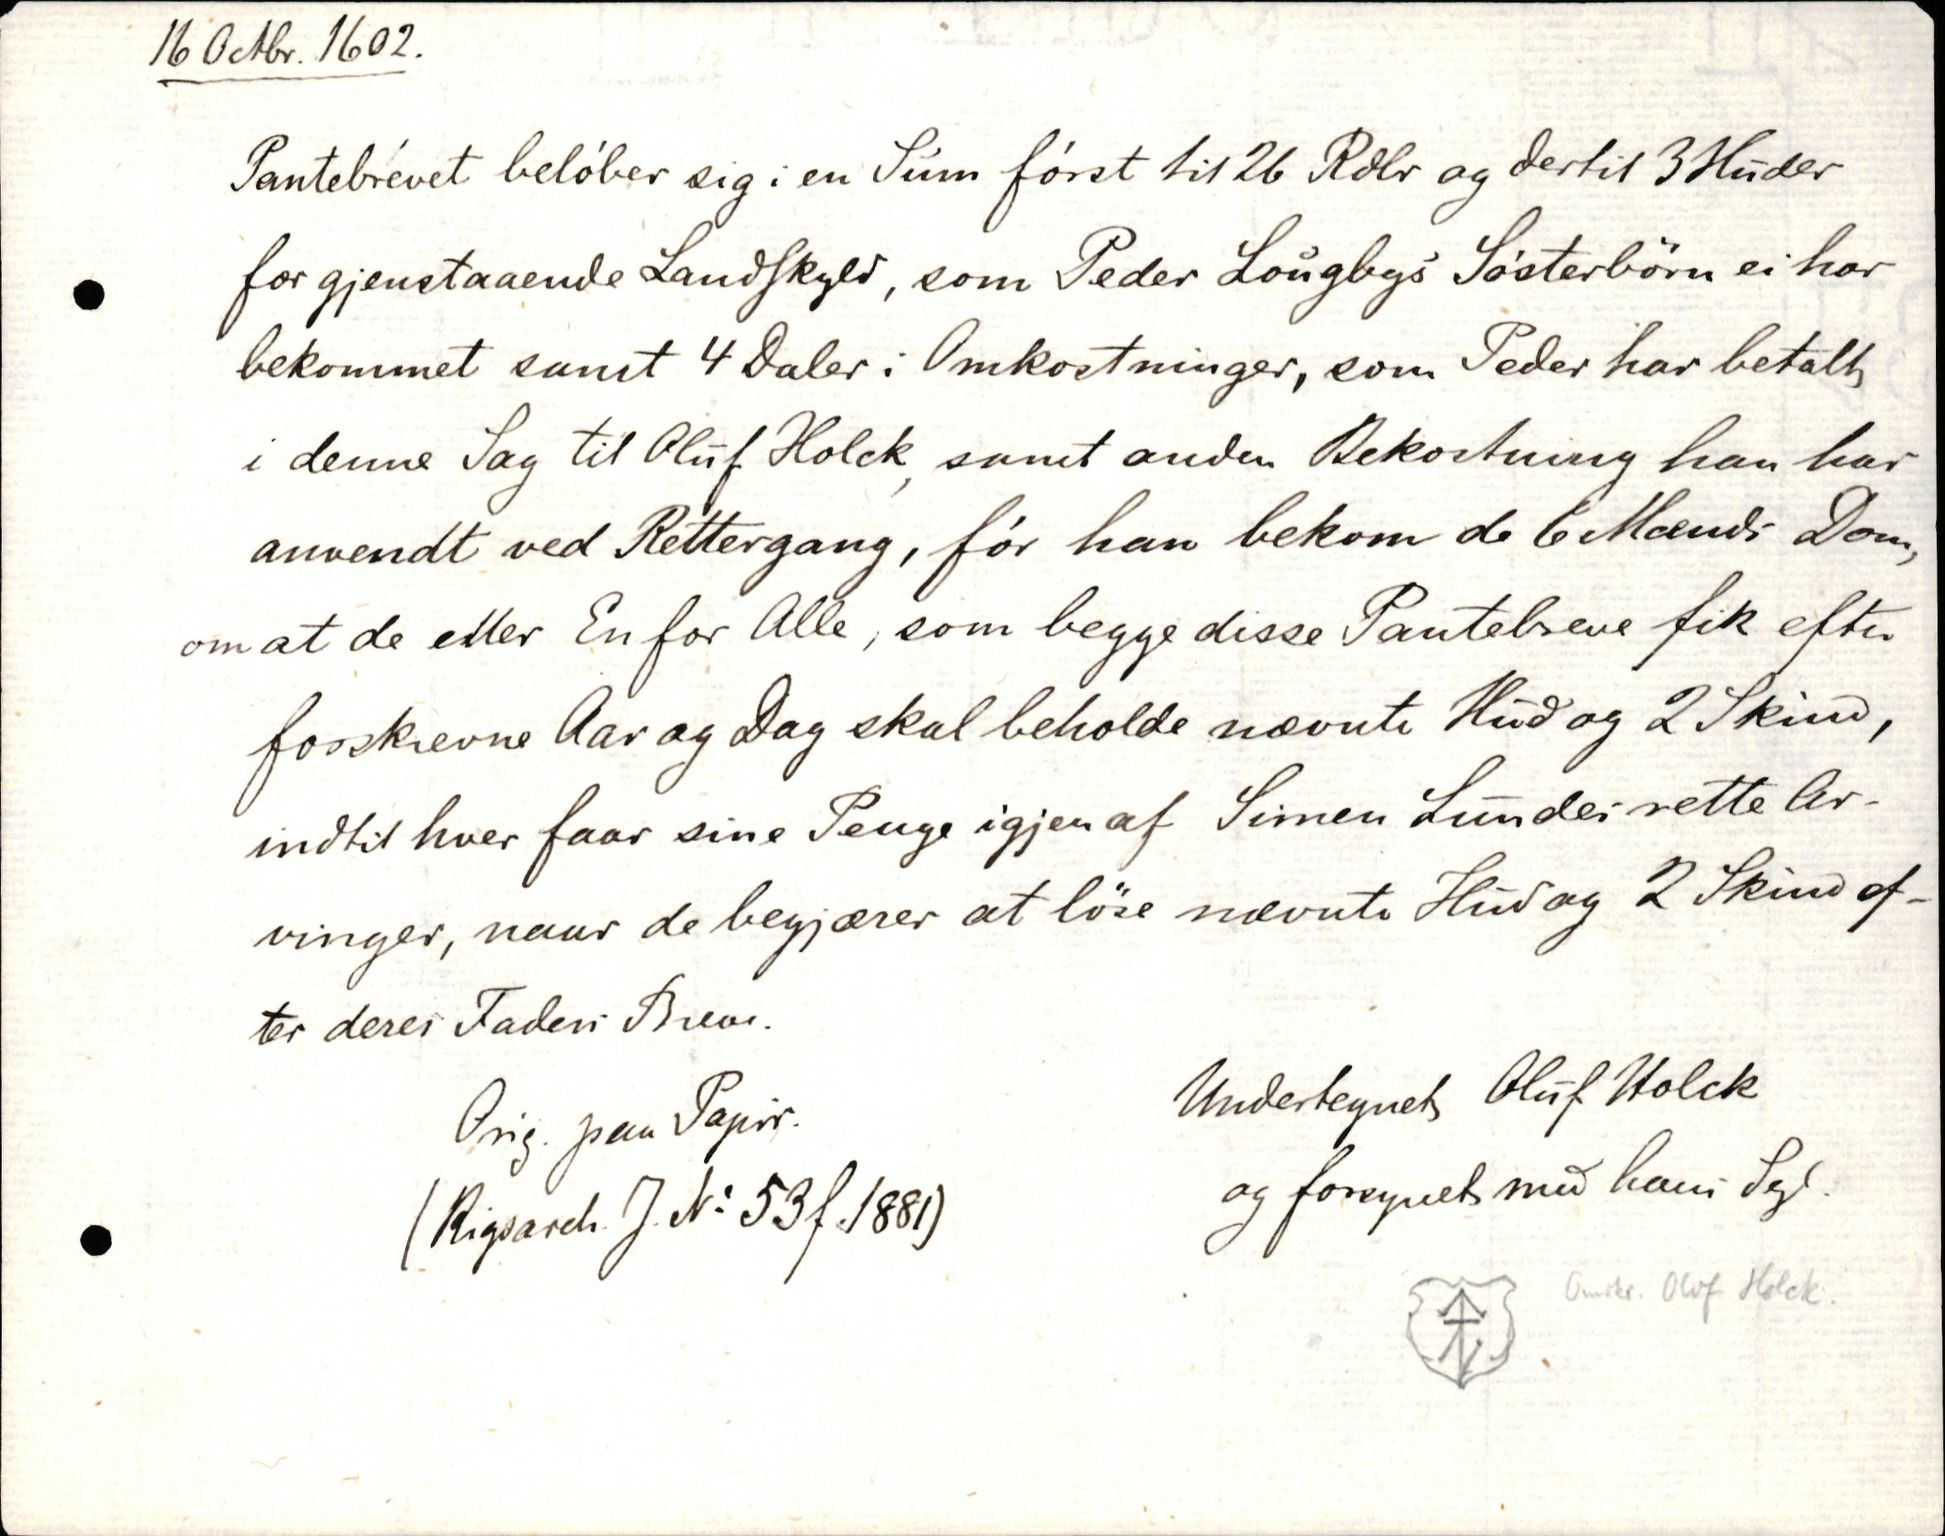 16 Octbr. 1602.
Pantebrevet belöber sig i en Sum först til 26 Rdlr og dertil 3 Huder
for gjenstaaende Landskyld, som Peder Lougbys Sösterbörn ei har
bekommet samt 4 Daler i Omkostninger, som Peder har betalt
i denne Sag til Oluf Holck, samt anden Bekostning han har
anvendt ved Rettergang, för han bekom de 6 Mænds Dom,
om at de eller En for Alle, som begge disse Pantebreve fik efter
forskrevne Aar og Dag skal beholde nævnte Hud og 2 Skind,
indtil hver faar sine Penge igjen af Simen Lundes rette Ar-
vinger, naar de begjærer at löse nævnte Hud og 2 Skind ef-
ter deres Faders Breve.
Orig. paa Papir.
(Rigsarch. J. No: 53 f. 1881)
Undertegnet Oluf Holck
og forsynet med hans Segl.
Omskr. Olof Holck.